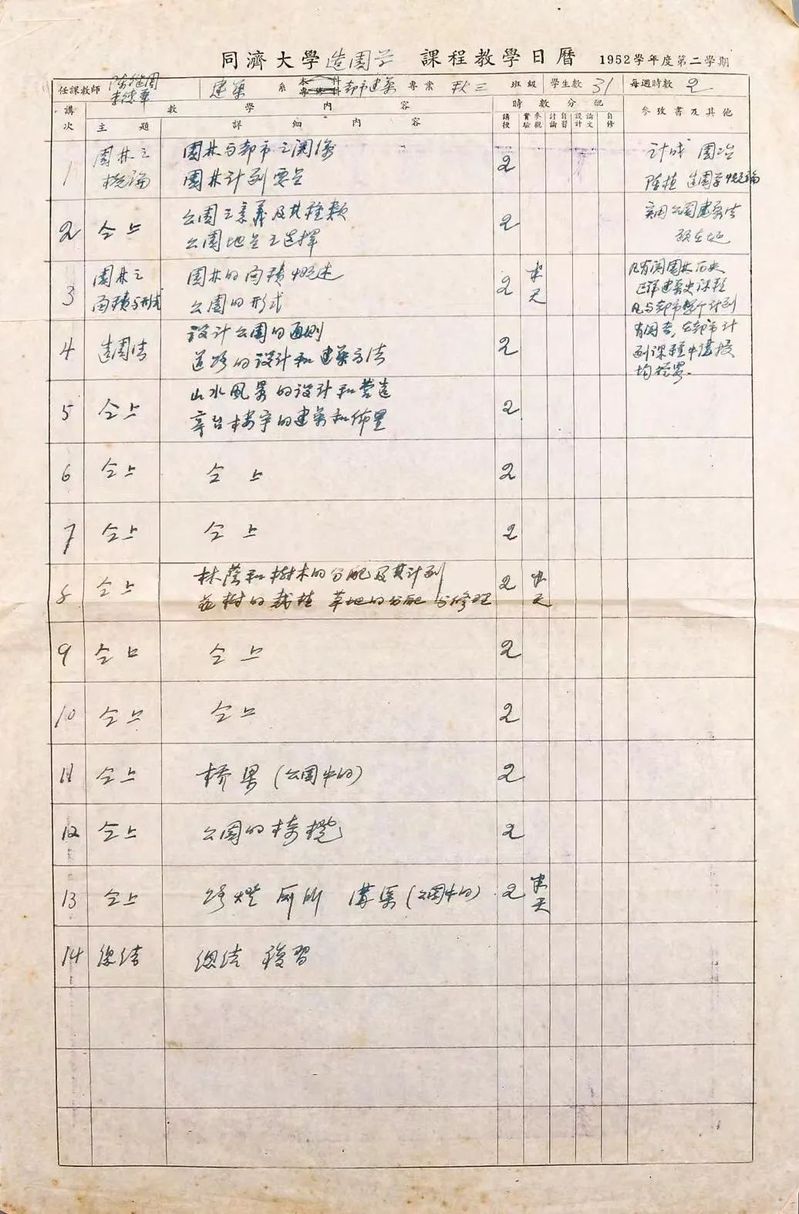 同濟大學造園学 課程教學日曆 1952學年度第二學期
任課教師 陈從周 建築 系 本科 專修科 都市建築 專業 秋三 班級 學生數 31 每週時數 2
講次 教學內容 時數分配 參攷書及其他
主題 詳細內容 講授 實驗 參觀 討論 自習 設計 論文 自修
1 園林之概論 園林与都市之関係 2 計成 園冶
園林計划要点 陈植 造園学概論
2 仝上 公園之意義及其種類 2 实用公園建築法
公園地点之选擇
3 園林之面積与形式 園林的面積概述 2 半天 凡有関園林历史
公園的形式
4 造園法 設計公園的通則 2
道路的設計和建築方法
5 仝上 山水風景的設計和营造 2
亭台楼宇的建築和佈置
6 仝上 仝上 2
7 仝上 仝上 2
8 仝上 林蔭和樹木的分配及其計划 2 半天
花树的栽植 草地的分配与修理
9 仝上 仝上 2
10 仝上 仝上 2
11 仝上 桥梁(公園中的) 2
12 仝上 公園的椅櫈 2
13 仝上 路燈 厕所 溝渠(公園中的) 2 半天
14 總结 總结 複習